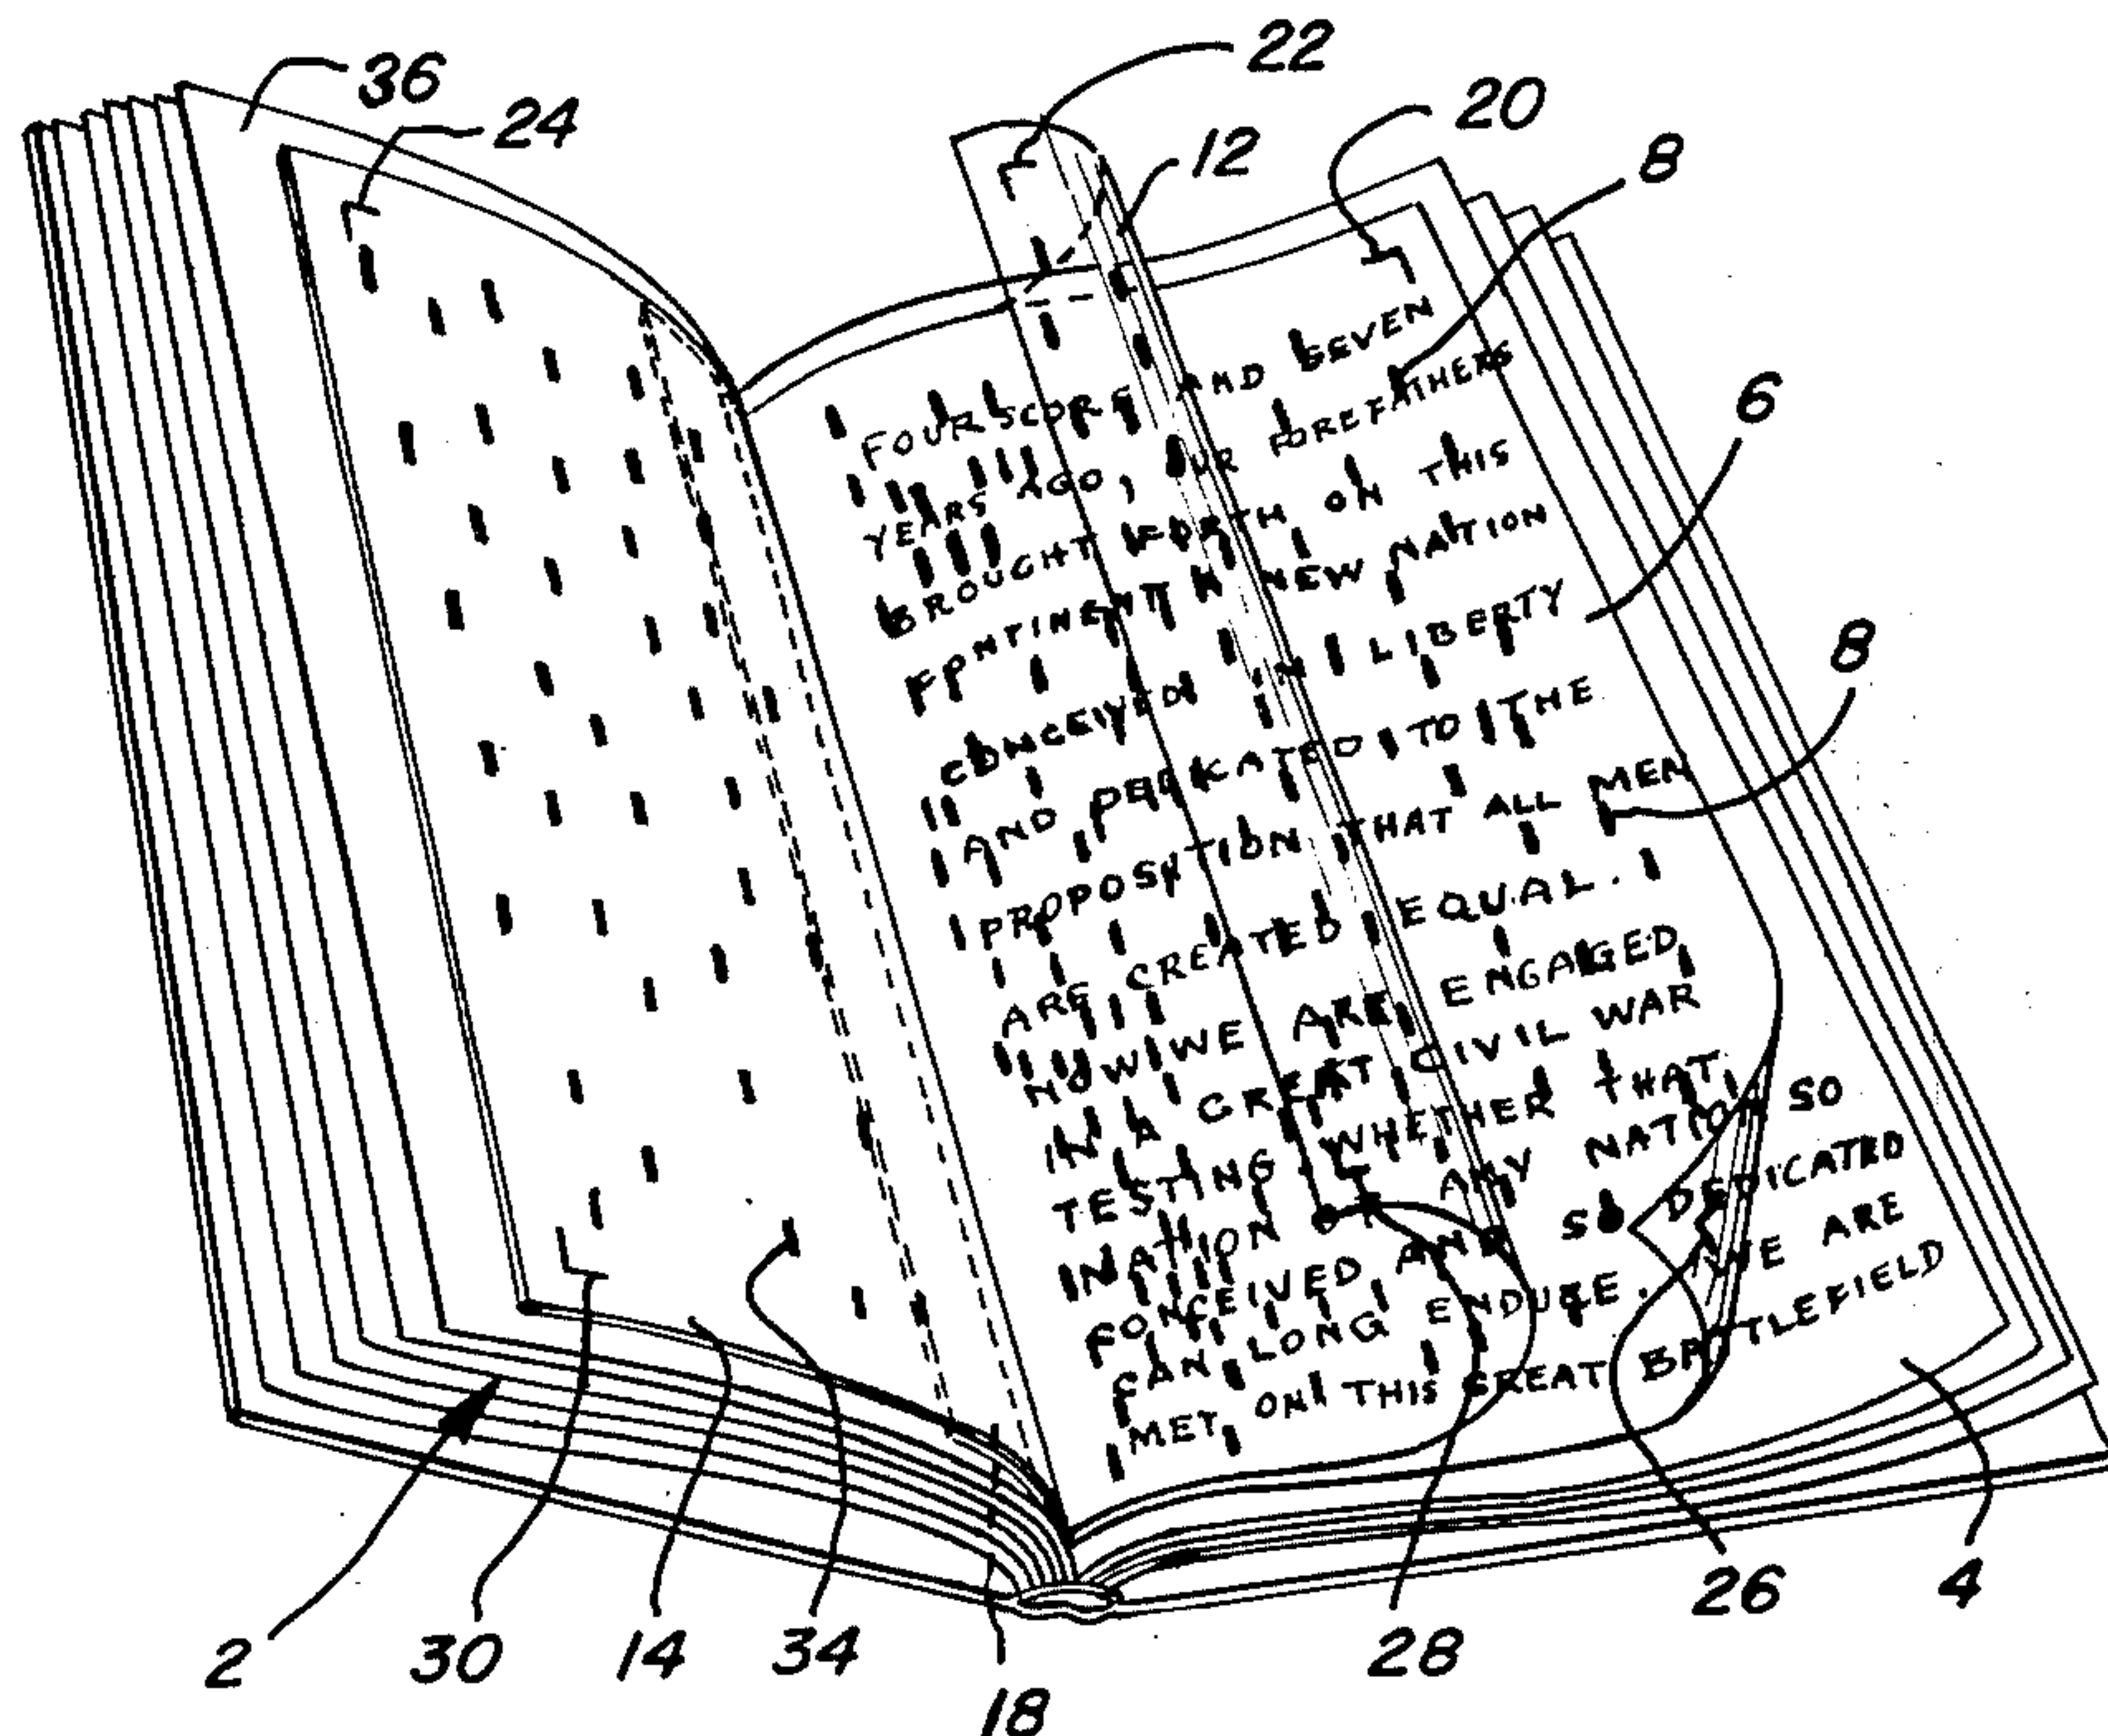 36
24
22
20
12
8
6
8
FOUR SCORE AND SEVEN
YEARS AGO, OUR FOREFATHERS
BROUGHT FORTH ON THIS
FONTINENT A NEW NATION
CONCEIVED IN LIBERTY
AND DEDICATED TO THE
PROPOSITION THAT ALL MEN
ARE CREATED EQUAL.
NOW WE ARE ENGAGED
IN A GREAT CIVIL WAR
TESTING WHETHER THAT
NATION OR ANY NATION SO
FONCEIVED AND SO DEDICATED
FAN LONG ENDURE. WE ARE
MET ON THIS GREAT BATTLEFIELD
2
30
14
34
18
28
26
4